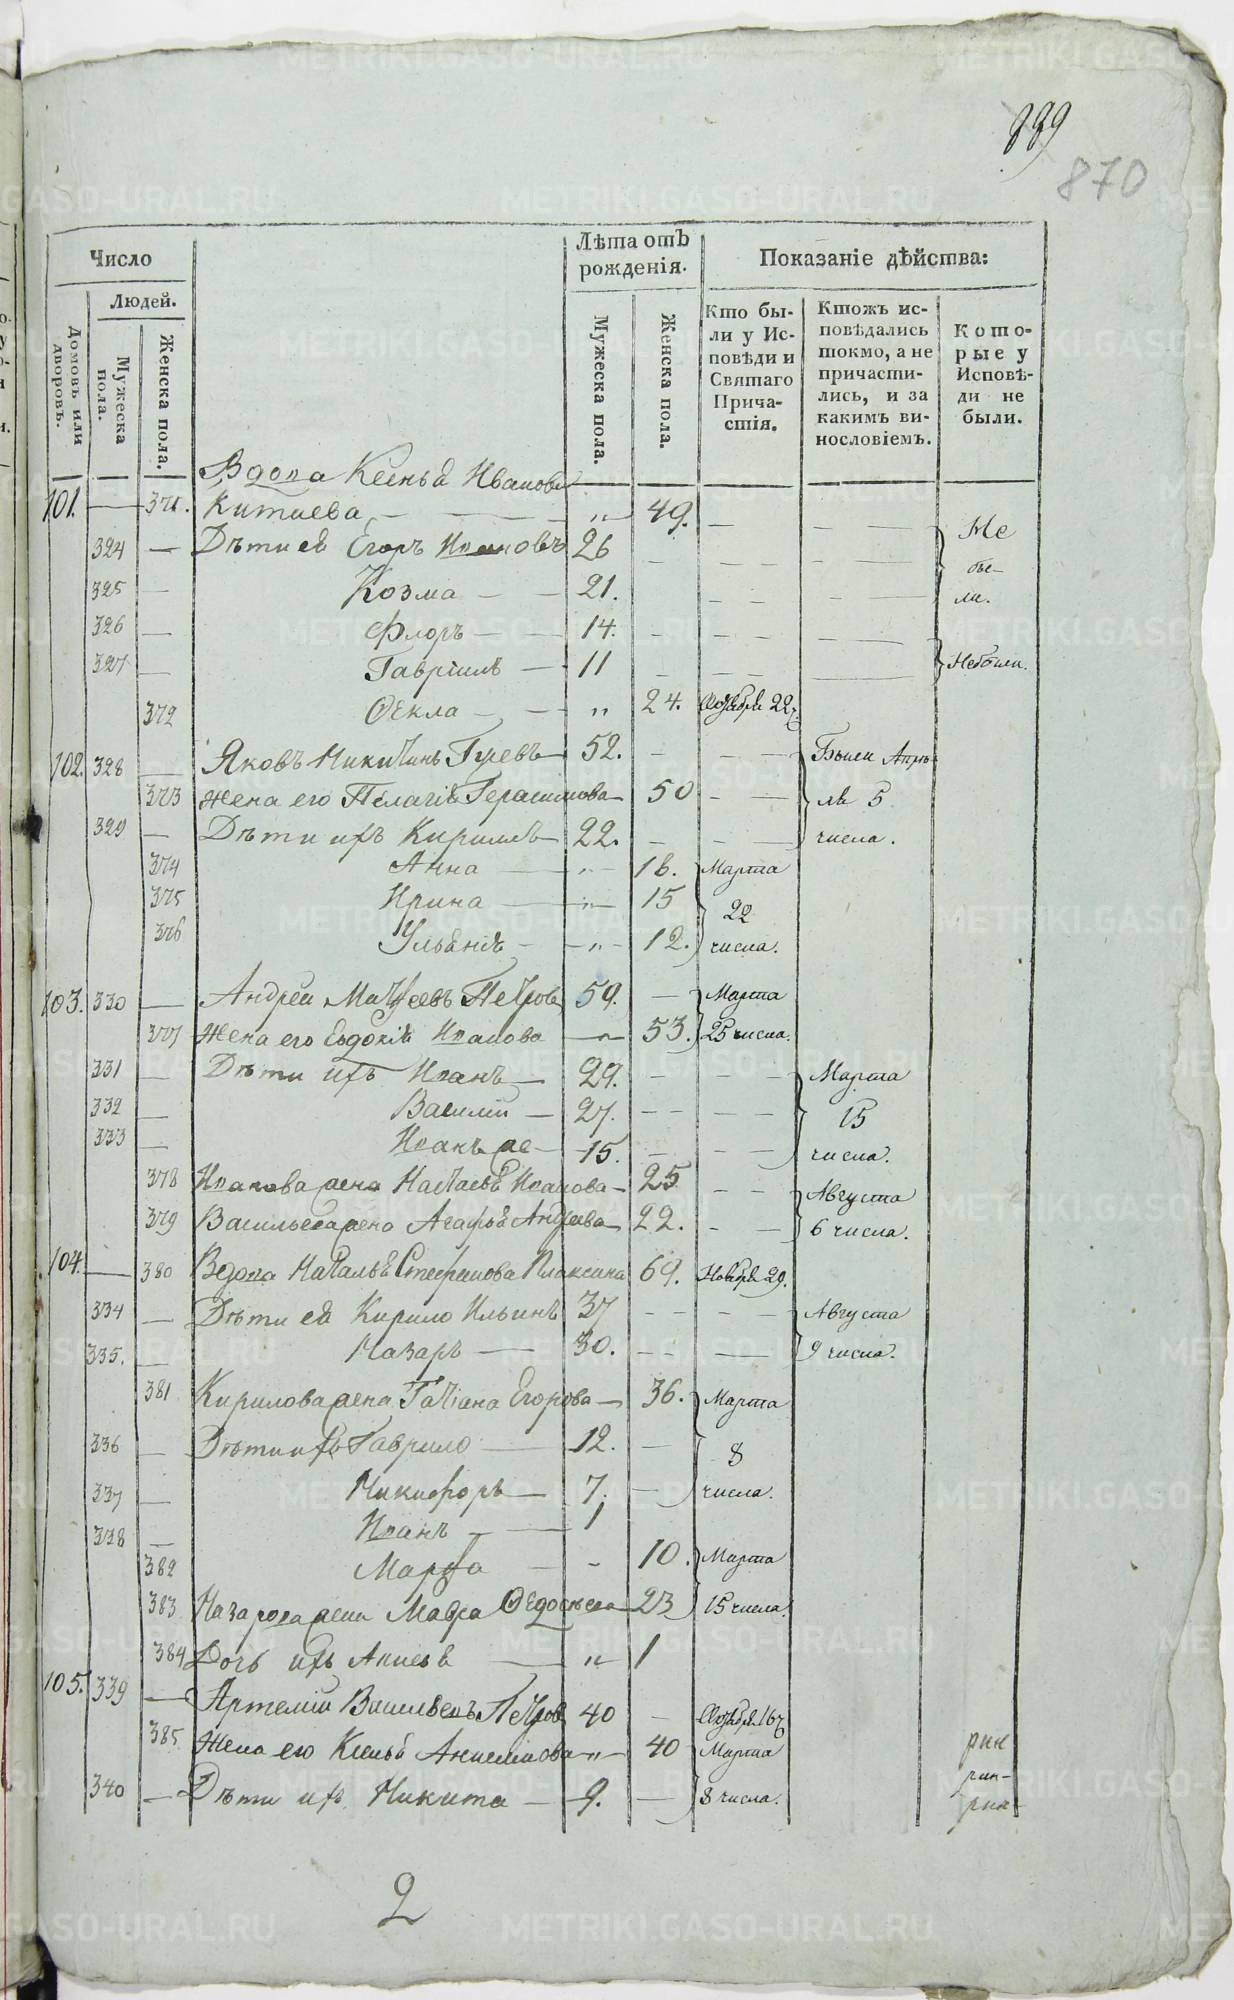 870
Число
Людей.
Домовъ или дворовъ.
Мужеска пола.
Женска пола.
Лѣта отъ рожденія.
Мужеска пола.
Женска пола.
Показаніе дѣйства:
Кто были у Исповѣди и Святаго Причастія.
Ктожъ исповѣдались токмо, а не причастились, и за какимъ винословіемъ.
Которые у Исповѣди не были.
Вдова Ксенья Иванова
101. — 371. Китаева — " 49. — — — Не
324 — Дѣти ея Егоръ Ивановъ 26 — — — бы-
325 — Козма — 21. — — — ли.
326 — Флоръ — 14. — — —
327 — Гавріилъ — 11 — — — Небыли.
372 Ѳекла — " 24. 22
102. 328 — Яковъ Никитинъ Гуевъ 52. — — Были Апрѣ-
373 жена его Пелагія Герасимова — 50 — — ля 5
329 — Дѣти ихъ Кирилъ 22. — — числа.
374 Анна — " — 16. Марта
375 Ирина — " — 15 22
376 Ульянія — " — 12. числа.
103. 330 — Андрей Матѳеевъ Петровъ 59. — Марта
377 Жена его Евдокія Иванова — " 53. 25 числа.
331 — Дѣти ихъ Иванъ — 29. — — Марта
332 — Василій — 27. — — 15
333 — Иванъ же — 15. — — числа.
378 Иванова жена Настасья Иванова — 25 — — Августа
379 Васильева жена Агафья Андреева — 22. — — 6 числа.
104. — 380 Вдова Наталья Стефанова Плаксина 69. Ноября 29.
334 — Дѣти ея Кирило Ильинъ 37 — — Августа
335. — Назаръ — 30. — — 9 числа.
381 Кирилова жена Татіана Егорова — 36. Марта
336 — Дѣти ихъ Гаврило — 12. — 8
337 — Никифоръ — 7. — числа.
338 — Иванъ — 1
382 Марѳа — - 10. Марта
383 Назарова жена Мавра Ѳедосѣева — 23 15 числа.
384 Дочь ихъ Анисья — " 1
105. 339 — Артемій Васильевъ Петровъ 40 — 16
385 Жена его Ксенья Анисимова — " — 40 Марта
340 — Дѣти ихъ Никита — 9. — 8 числа.
2
METRIKI.GASO-URAL.RU